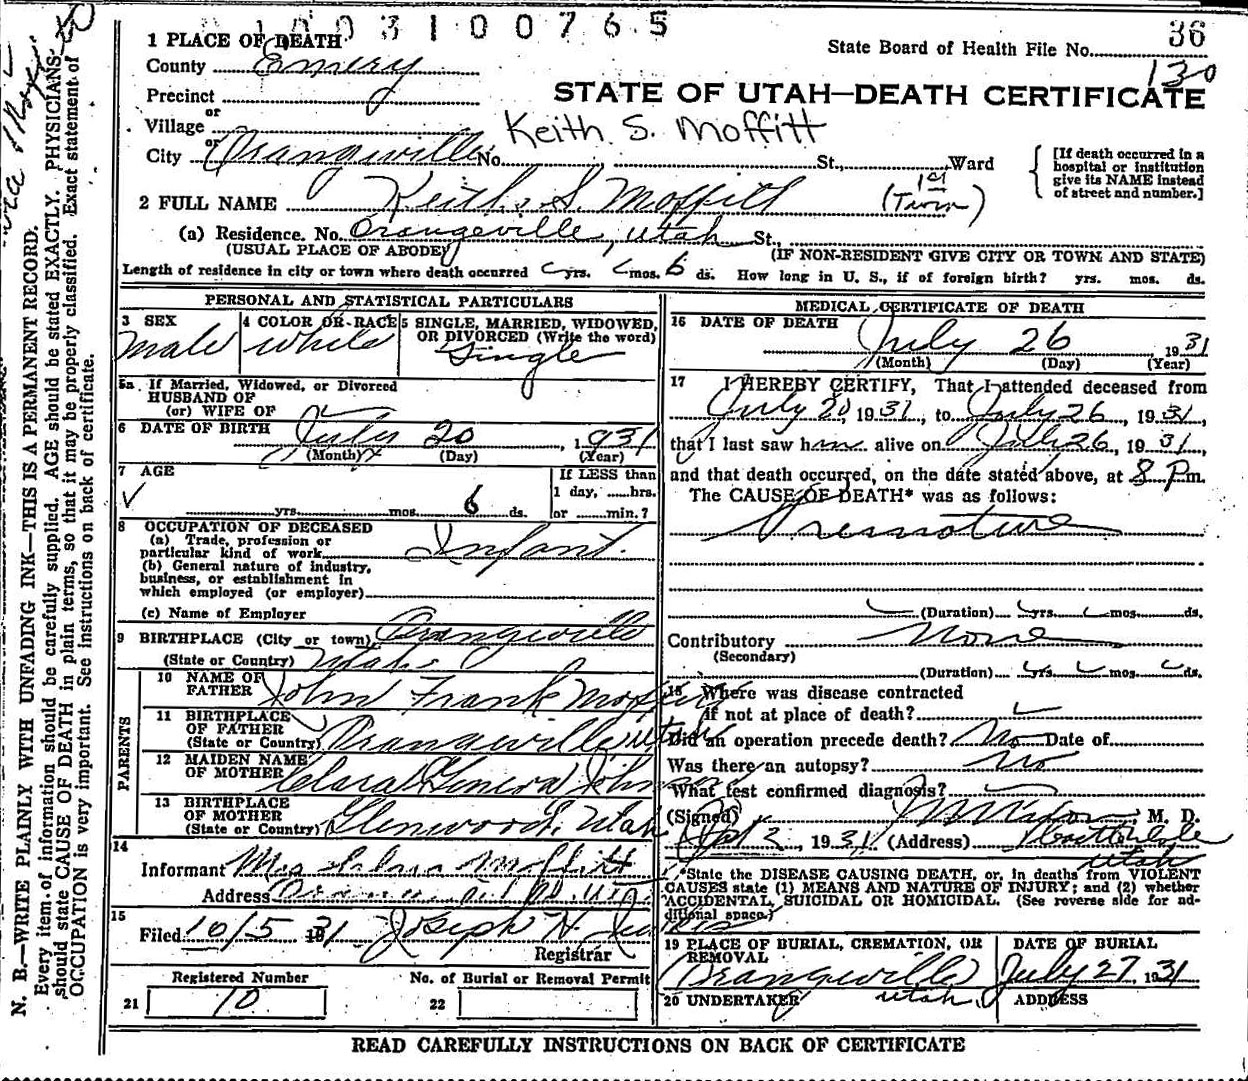 1003100765
36
1 PLACE OF DEATH
State Board of Health File No.
130
County Emery
Precinct
STATE OF UTAH—DEATH CERTIFICATE
or
Village
Keith S. Moffitt
or
City Orangeville No. St., Ward
[If death occurred in a hospital or institution give its NAME instead of street and number.]
2 FULL NAME Keith S. Moffitt (1st Twin)
(a) Residence. No. Orangeville, Utah St.,
(USUAL PLACE OF ABODE) (IF NON-RESIDENT GIVE CITY OR TOWN AND STATE)
Length of residence in city or town where death occurred yrs. mos. 6 ds. How long in U. S., if of foreign birth? yrs. mos. ds.
PERSONAL AND STATISTICAL PARTICULARS
3 SEX 4 COLOR OR RACE 5 SINGLE, MARRIED, WIDOWED, OR DIVORCED (Write the word)
Male White Single
5a If Married, Widowed, or Divorced
HUSBAND OF
(or) WIFE OF
6 DATE OF BIRTH July 20, 1931
(Month) (Day) (Year)
7 AGE If LESS than
1 day, hrs.
yrs. mos. 6 ds. or min.?
8 OCCUPATION OF DECEASED
(a) Trade, profession or
particular kind of work Infant.
(b) General nature of industry,
business, or establishment in
which employed (or employer)
(c) Name of Employer
9 BIRTHPLACE (City or town) Orangeville
(State or Country) Utah
PARENTS
10 NAME OF FATHER John Frank Moffitt
11 BIRTHPLACE OF FATHER (State or Country) Orangeville Utah
12 MAIDEN NAME OF MOTHER Clara Geneva
13 BIRTHPLACE OF MOTHER (State or Country) Glenwood, Utah
14
Informant Mrs Moffitt
Address
15
Filed 10/5 1931 Joseph H.
Registrar
Registered Number No. of Burial or Removal Permit
21 10 22
MEDICAL CERTIFICATE OF DEATH
16 DATE OF DEATH July 26 1931
(Month) (Day) (Year)
17 I HEREBY CERTIFY, That I attended deceased from
July 20, 1931, to July 26, 1931,
that I last saw him alive on July 26, 1931,
and that death occurred, on the date stated above, at 8 Pm.
The CAUSE OF DEATH* was as follows:
Premature
(Duration) yrs. mos. ds.
Contributory None
(Secondary)
(Duration) yrs. mos. ds.
18 Where was disease contracted
if not at place of death?
Did an operation precede death? No Date of
Was there an autopsy? No
What test confirmed diagnosis?
(Signed) M. D.
2, 1931 (Address)
Utah
*State the DISEASE CAUSING DEATH, or, in deaths from VIOLENT
CAUSES state (1) MEANS AND NATURE OF INJURY; and (2) whether
ACCIDENTAL, SUICIDAL OR HOMICIDAL. (See reverse side for ad-
ditional space.)
19 PLACE OF BURIAL, CREMATION, OR REMOVAL DATE OF BURIAL
Orangeville Utah July 27, 1931
20 UNDERTAKER ADDRESS
READ CAREFULLY INSTRUCTIONS ON BACK OF CERTIFICATE
N. B.—WRITE PLAINLY WITH UNFADING INK—THIS IS A PERMANENT RECORD.
Every item of information should be carefully supplied. AGE should be stated EXACTLY. PHYSICIANS
should state CAUSE OF DEATH in plain terms, so that it may be properly classified. Exact statement of
OCCUPATION is very important. See instructions on back of certificate.